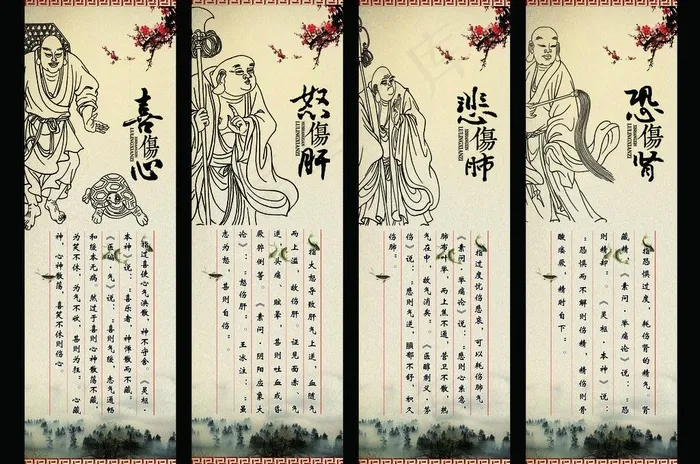 喜傷心
指过喜使心气涣散，神不守舍。《灵枢·
本神》说："喜乐者，神惮散而不藏。
《医碥·气》说："喜则气缓，志气通畅
和缓本无病。然过于喜则心神散荡不藏，
为笑不休，为气不收，甚则为狂"。心藏
神，心神散荡，喜笑不休则伤心。
怒傷肝
指大怒导致肝气上逆，血随气
而上溢，故伤肝。证见面赤、气
逆、头痛、眩晕，甚则吐血或昏
厥猝倒等。《素问·阴阳应象大
论》："怒伤肝"。王冰注："虽
志为怒，甚则自伤"。
悲傷肺
指过度忧伤悲哀，可以耗伤肺气
《素问·举痛论》说："悲则心系急，
肺布叶举，而上焦不通，营卫不散，热
气在中，故气消矣"。《医醇剩义·劳
伤》说："悲则气逆，膹郁不舒，积久
伤肺"。
恐傷肾
指恐惧过度，耗伤肾的精气。肾
藏精，《素问·举痛论》说："恐
则精却"。《灵枢·本神》说：
"恐惧而不解则伤精，精伤则骨
酸痿厥，精时自下"。